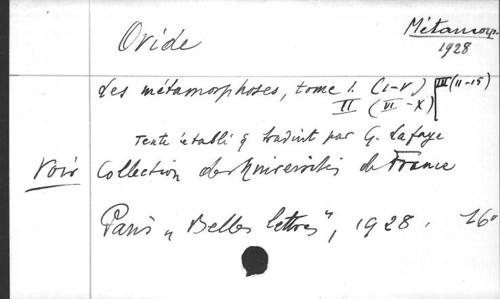 Ovide
Métamorp.
1928
Les métamorphoses, tome I. (I-V)
II (VI-X)
III (11-15)
Texte établi & traduit par G. Lafaye
voir Collection des Universités de France
Paris „Belles lettres", 1928. 16°